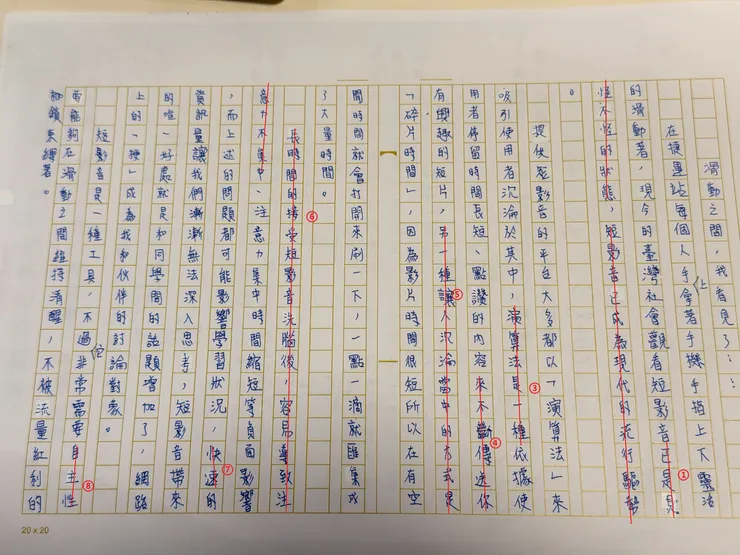 滑動之間,我看見了……
在捷運站每個人手拿著手機手指上下靈活
上
的滑動著,現今的臺灣社會觀看短影音已是見
怪不怪的狀態,短影音已成為現代的流行驅幣
。
提供短影音的平台大多都以「演算法」來
吸引使用者沉淪於其中,演算法是一種依據使
用者停留時間長短、點讚的內容來不斷傳送你
有興趣的短片,另一種讓人沉淪當中的方式是
「碎片時間」,因為影片時間很短所以在有空
閒時間就會打開來刷一下,一點一滴就匯集成
了大量時間。
長時間的接受短影音洗腦後,容易導致注
意力不集中、注意力集中時間縮短等負面影響
,而上述的問題都可能影響學習狀況,快速的
資訊量讓我們漸漸無法深入思考,短影音帶來
的唯一好處就是和同學間的話題增加了,網路
上的「梗」成為我和伙伴的討論對象。
短影音是一種工具,不過非常需要自主性
它
要能夠在滑動之間維持清醒,不被流量紅利的
枷鎖束縛著。
①
③
④
⑤
⑥
⑦
⑧
20 x 20